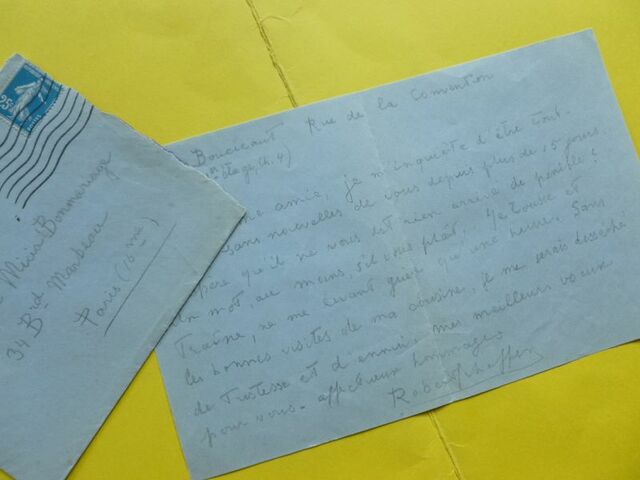 25c
Missia Bonmariage
34 Bvd Murat
Paris (16 me)
Boucicaut Rue de la Convention
étage, ch. 4)
amie, je m'inquiète d'être tout-
sans nouvelles de vous depuis plus de 15 jours.
père qu'il ne vous est rien arrivé de pénible?
Un mot au moins, s'il vous plaît, Je tousse et
traîne, ne me levant guère qu'une heure. Sans
les bonnes visites de ma cousine, je me serais desséché
de tristesse et d'ennui, mes meilleurs voeux
pour vous - affectueux hommages
Robert